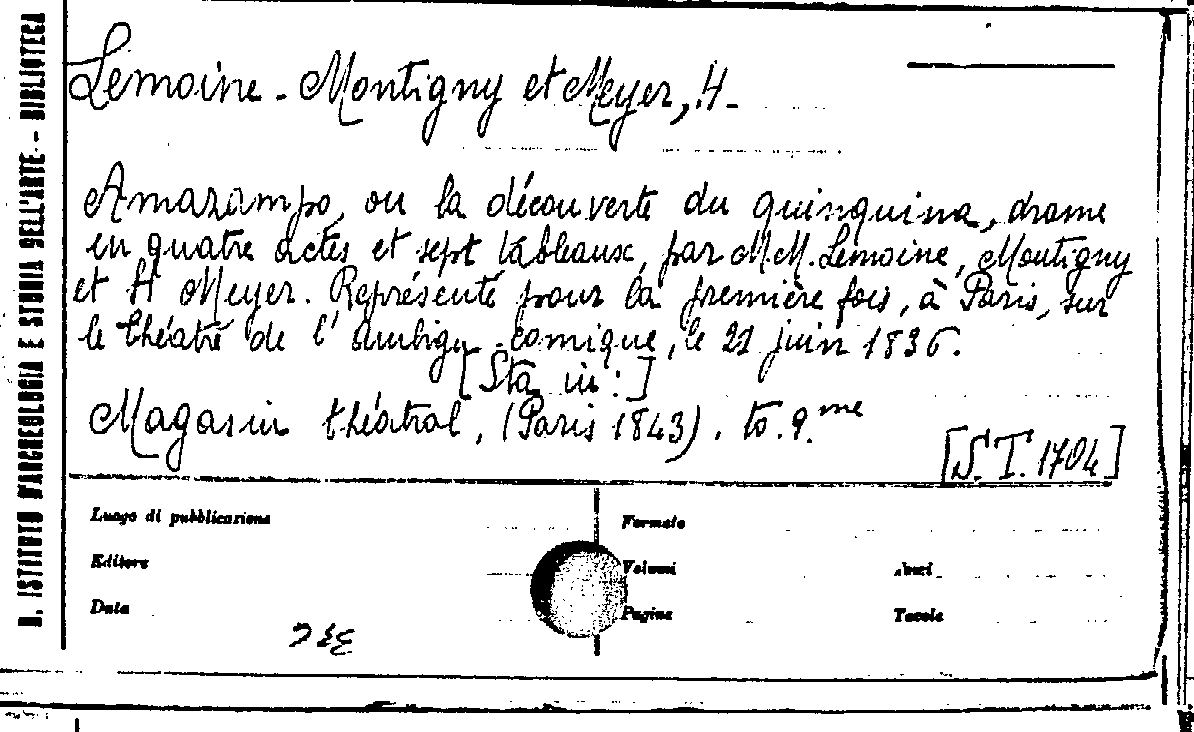 R. ISTITUTO D'ARCHEOLOGIA E STORIA DELL'ARTE - BIBLIOTECA
Lemoine-Montigny et Meyer, H-
Amazampo, ou la découverte du quinquina, drame
en quatre actes et sept tableaux, par M.M. Lemoine, Montigny
et H Meyer. Représenté pour la première fois, à Paris, sur
le théatre de l'ambigu-comique, le 21 juin 1836.
[Sta in:]
Magasin théatral, (Paris 1843). to. 9.me
[S.T. 1704]
Luogo di pubblicazione
Formato
Editore
Volumi
Data
Pagine
Tavole